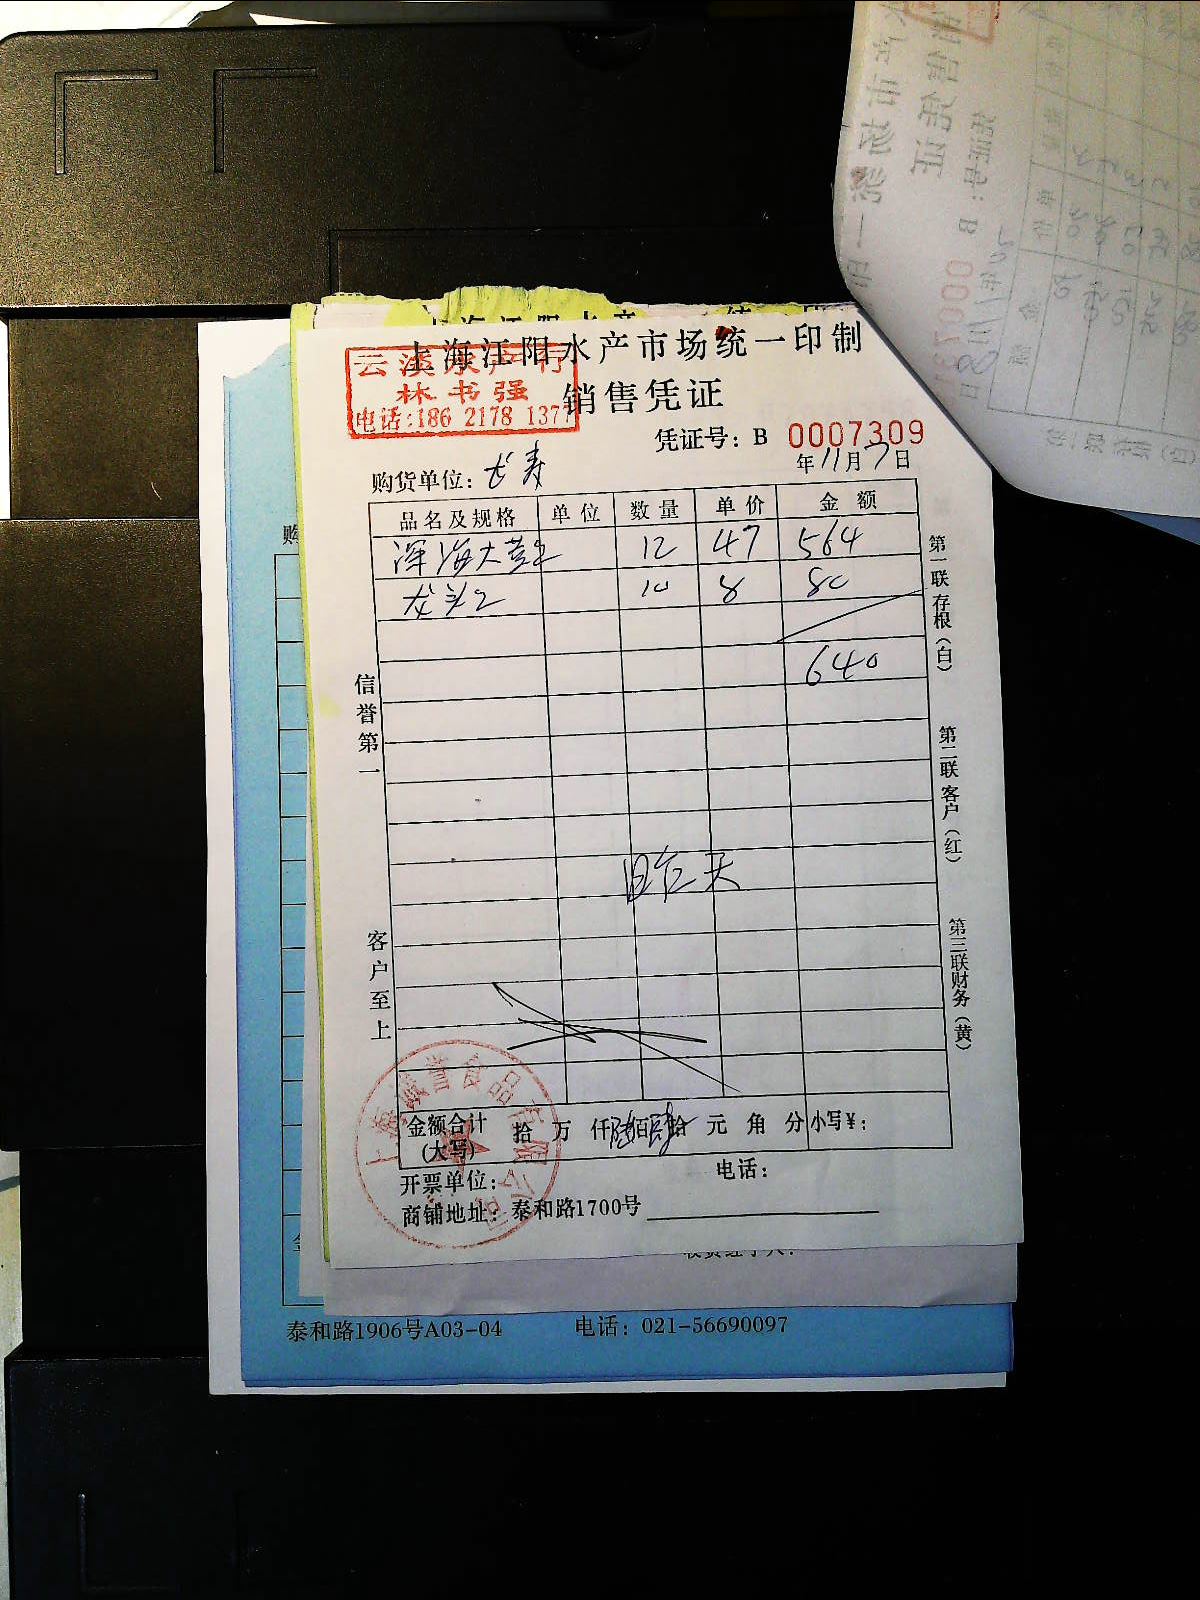 上海江阳水产市场统一印制
云溪水产行
林书强
电话:186 2178 1377
销售凭证
凭证号：B 0007309
年11月7日
购货单位：长寿
品名及规格 单位 数量 单价 金额
深海大 12 47 564
龙头 10 8 80
640
信誉第一
客户至上
第一联存根（白）
第二联客户（红）
第三联财务（黄）
金额合计(大写) 拾 万 仟陆佰肆拾 元 角 分 小写¥：
上海诚誉食品有限公司
开票单位： 电话：
商铺地址：泰和路1700号
泰和路1906号A03-04 电话：021-56690097